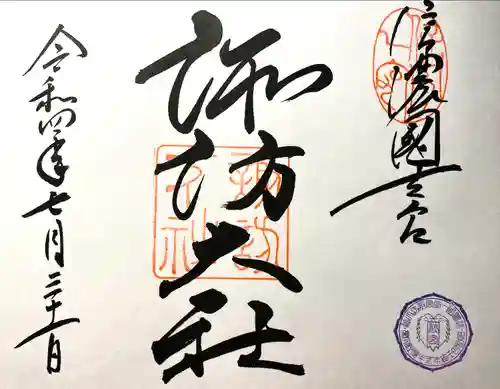 信濃國一之宮
諏訪大社
令和四年七月三十一日